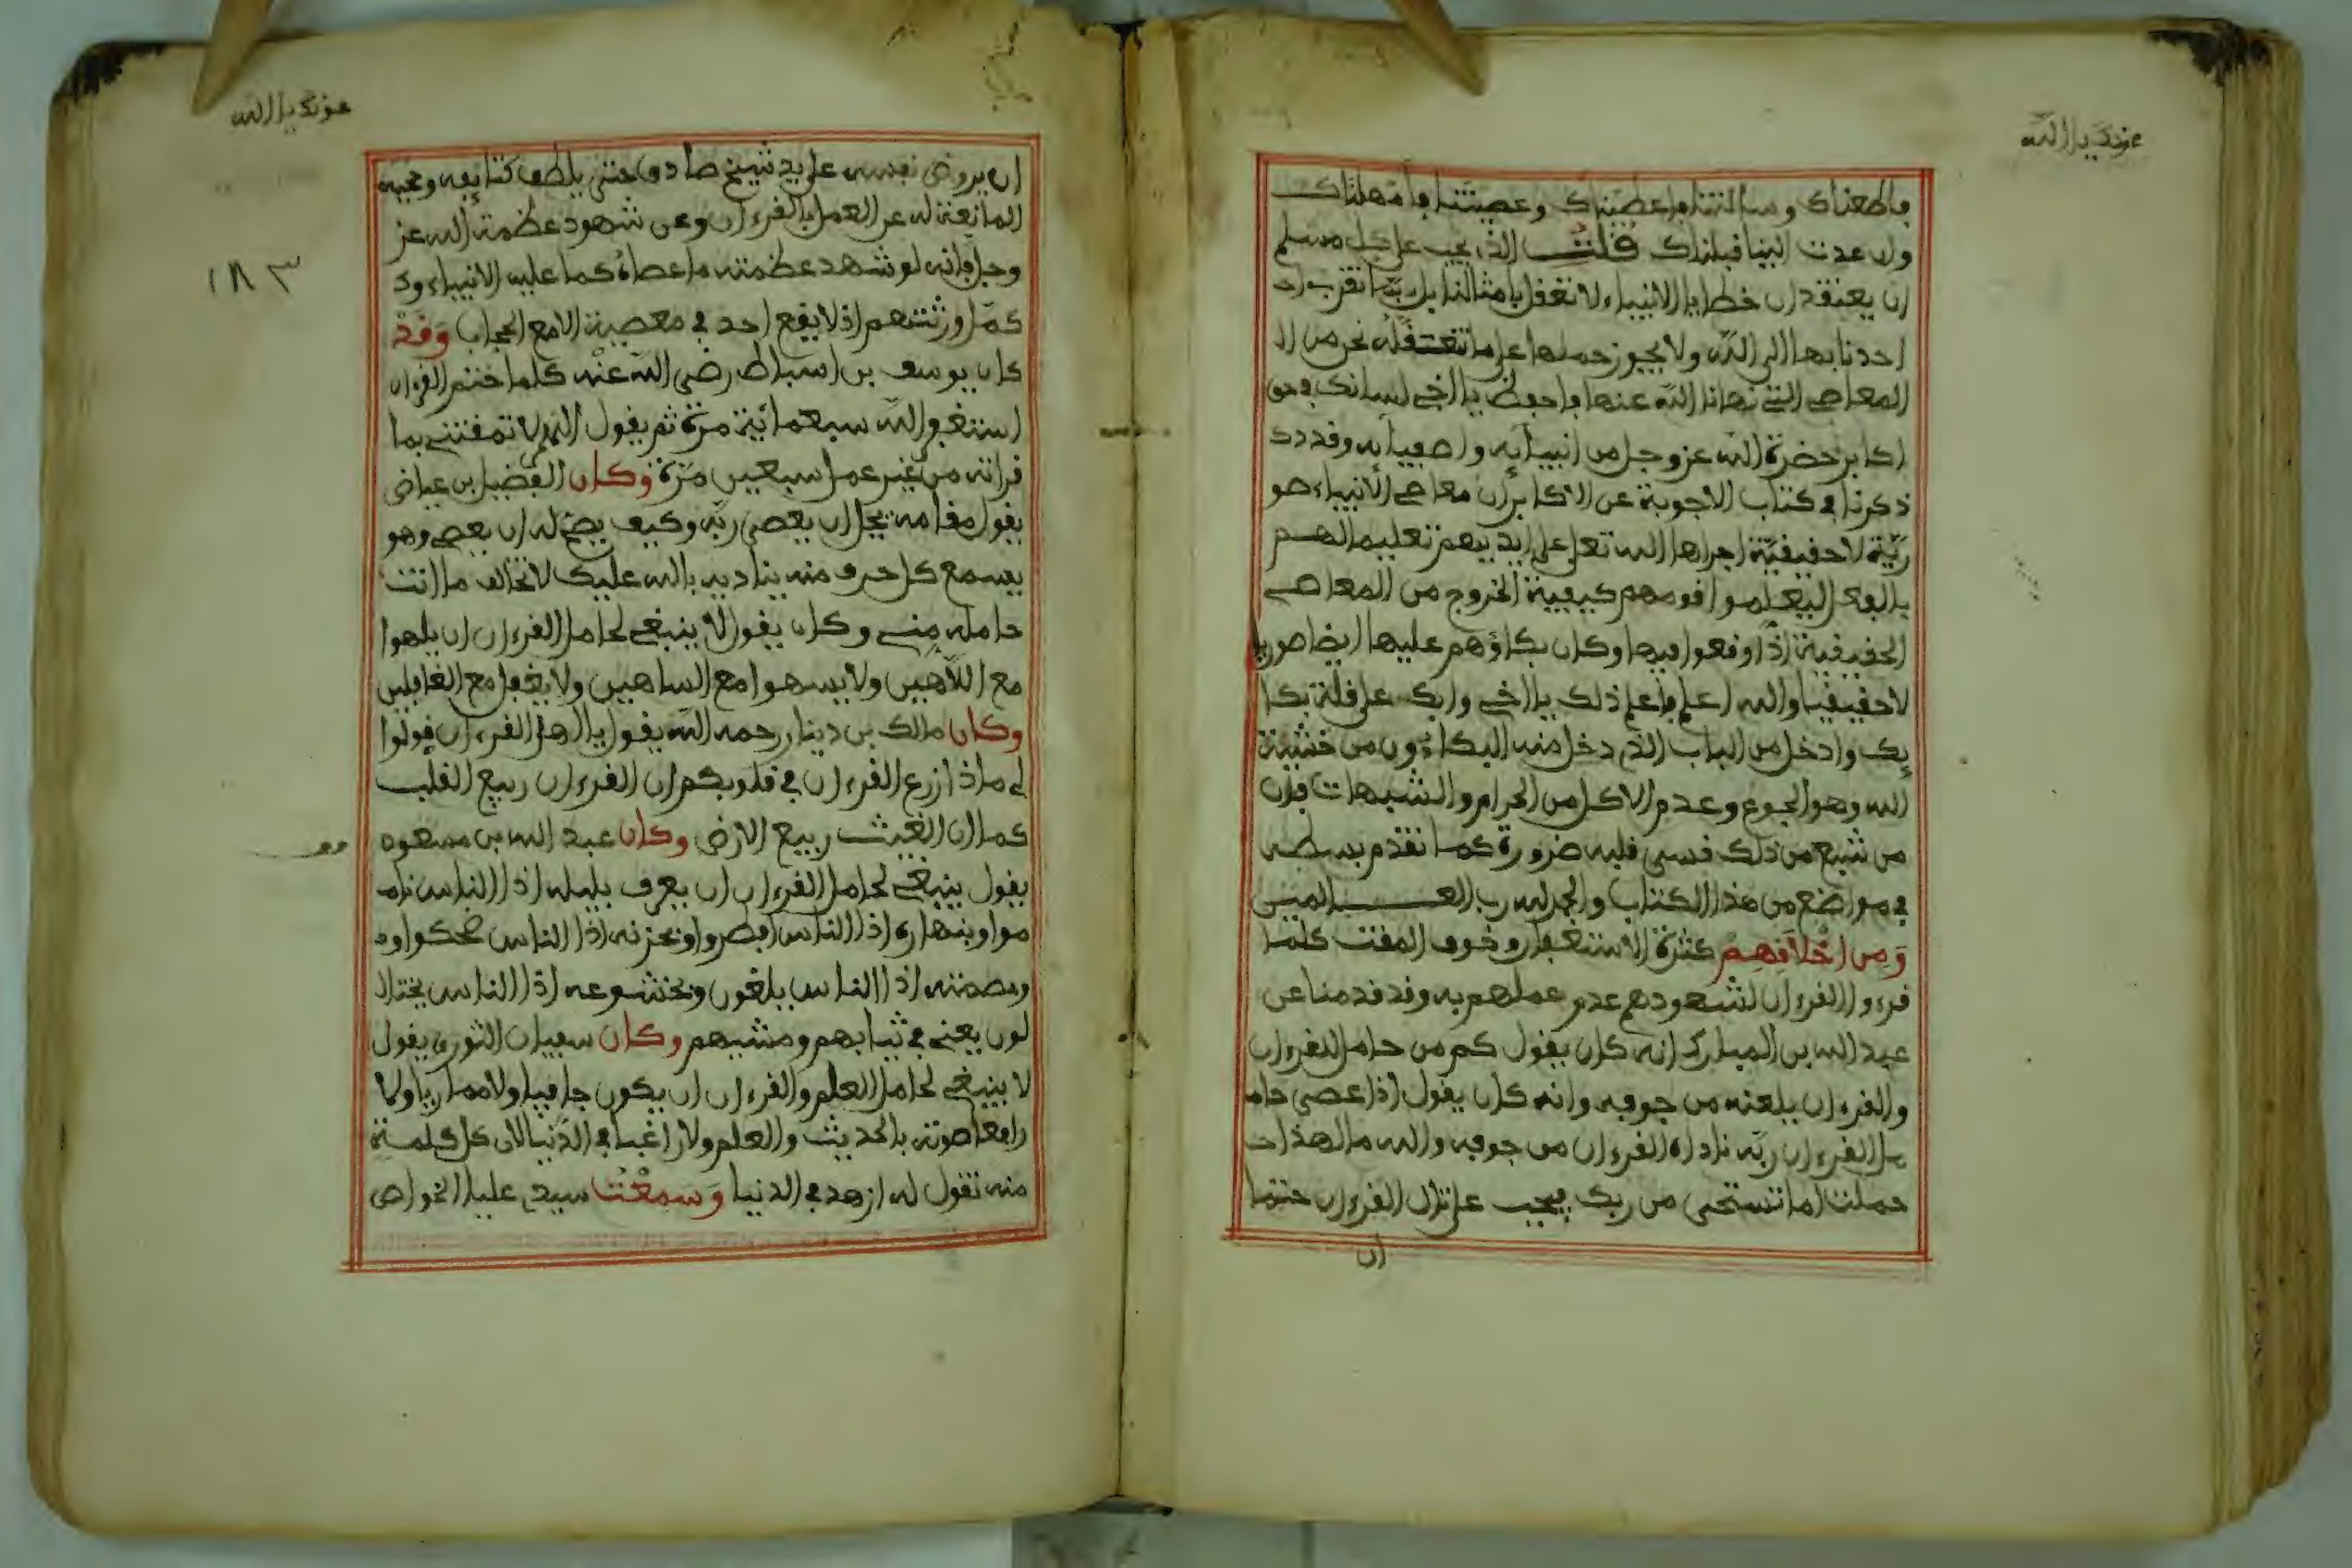 عونك يا الله
فاطعناك وسالتنا فاعطيناك وعصيتنا فامهلناك
وان عدت الينا قبلناك قلت الذي يجب على كل مسلم
ان يعتقد ان خطايا الانبياء لا تتعقل بامثالنا بل ربما تقرب
احدنا بها الى الله ولا يجوز حملها على ما نتعقله نحن من ا
لمعاصي التي نهانا الله عنها فاحفظ يا اخي لسانك في حق
اكابر حضرة الله عز وجل من انبيائه واصفيائه وقد
ذكرنا في كتاب الاجوبة عن الاكابر ان معاصي الانبياء صو
رية لا حقيقية اجراها الله تعلى على ايديهم تعليما لهم
بالفعل ليعلموا قومهم كيفية الخروج من المعاصي
الحقيقية اذا وقعوا فيها وكان بكاؤهم عليها ايضا صوريا
لا حقيقيا والله اعلم فاعلم ذلك يا اخي وابك على قلة بكا
ئك وادخل من الباب الذي دخل منه البكاؤون من خشية
الله وهو الجوع وعدم الاكل من الحرام والشبهات فان
من شبع من ذلك قسى قلبه ضرورة كما تقدم بسطه
في مواضع من هذا الكتاب والحمد لله رب العـــلمين
ومن اخلاقهم كثرة الاستغفار وخوف المقت كلما
قرءوا القرءان لشهودهم عدم عملهم به وقد قدمنا عن
عبد الله بن المبارك انه كان يقول كم من حامل للقرءان
والقرءان يلعنه من جوفه وانه كان يقول اذا عصى حام
ـل القرءان ربه ناداه القرءان من جوفه والله ما لهذا
حملت اما تستحي من ربك فيجب على تال القرءان حتما
ان
عونك يا الله
١٨٣
ان يروض نفسه على يد شيخ صادق حتى يلطف كثائفه وحجبه
المانعة له عن العمل بالقرءان وعن شهود عظمة الله عز
وجل فانه لو شهد عظمته ما عصاه كما عليه الانبياء و
كمل ورثتهم اذ لا يقع احد في معصية الا مع الحجاب وقد
كان يوسف بن اسباط رضي الله عنه كلما ختم القرءان
استغفر الله سبعمائة مرة ثم يقول اللهم لا تمقتني بما
قراته من غير عمل سبعين مرة وكان الفضيل بن عياض
يقول حامله يجل ان يعصي ربه وكيف يصح له ان يعصي وهو
يسمع كل حرف منه يناديه بالله عليك لا تخالف ما انت
حامله مني وكان يقول لا ينبغي لحامل القرءان ان يلهوا
مع اللاهين ولا يسهوا مع الساهين ولا يغفل مع الغافلين
وكان مالك بن دينار رحمه الله يقول يا اهل القرءان قولوا
لي ماذا زرع القرءان في قلوبكم ان القرءان ربيع القلب
كما ان الغيث ربيع الارض وكان عبد الله بن مسعود
يقول ينبغي لحامل القرءان ان يعرف بليله اذا الناس نا
موا وبنهاره اذا الناس افطروا وبحزنه اذا الناس ضحكوا و
وبصمته اذا الناس يلغون وبخشوعه اذا الناس يختا
لون يعني في ثيابهم ومشيهم وكان سفيان الثوري يقول
لا ينبغي لحامل العلم والقرءان ان يكون جافيا ولا مماريا ولا
رافعا صوته بالحديث والعلم ولا راغبا في الدنيا لان كل كلمة
منه تقول له ازهد في الدنيا وسمعت سيدي عليا الخواص